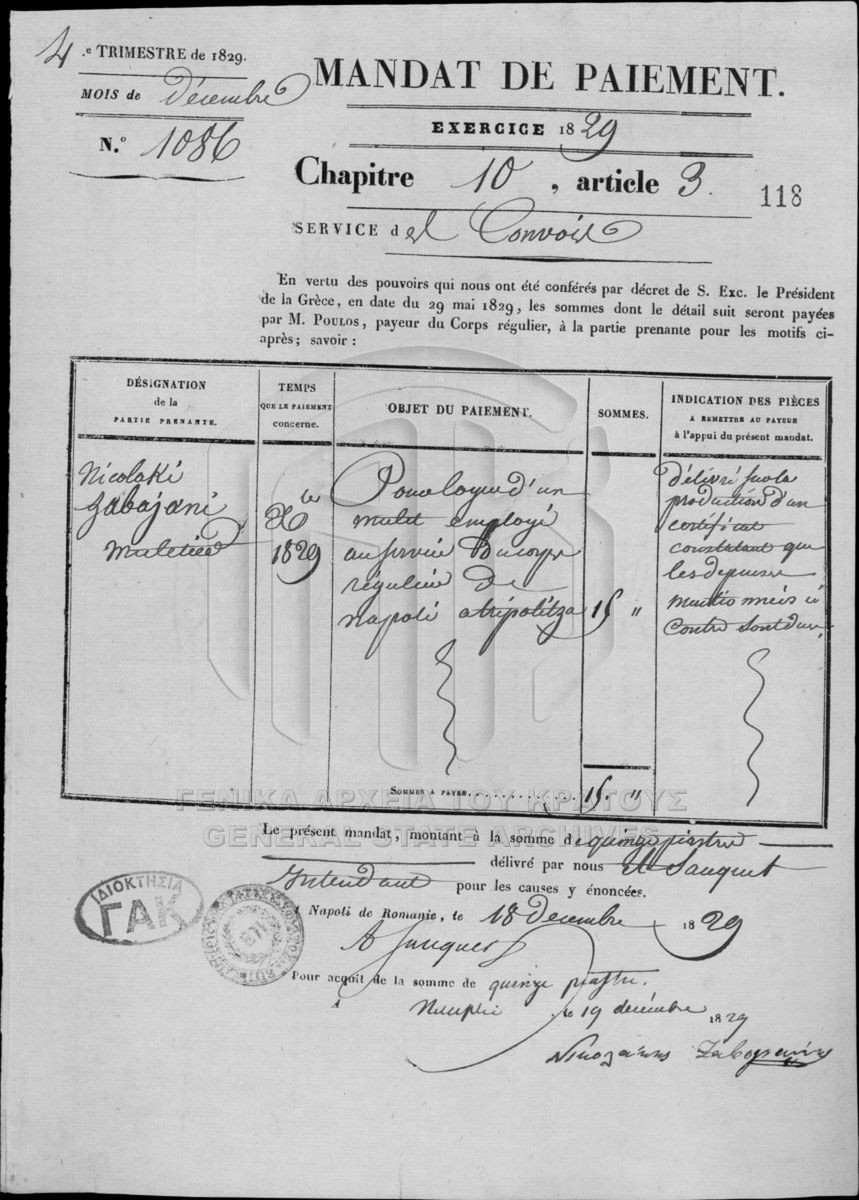 4.e TRIMESTRE de 1829.
MOIS de Décembre
N.º 1086
MANDAT DE PAIEMENT.
EXERCICE 1829
Chapitre 10, article 3.
118
SERVICE des Convois
En vertu des pouvoirs qui nous ont été conférés par décret de S. Exc. le Président
de la Grèce, en date du 29 mai 1829, les sommes dont le détail suit seront payées
par M. POULOS, payeur du Corps régulier, à la partie prenante pour les motifs ci-
après; savoir :
DÉSIGNATION
de la
PARTIE PRENANTE.
TEMPS
QUE LE PAIEMENT
concerne.
OBJET DU PAIEMENT.
SOMMES.
INDICATION DES PIÈCES
A REMETTRE AU PAYEUR
à l'appui du présent mandat.
Nicolaki
Zabajani
Muletier
Xbre
1829
Pour loyer d'un
mulet employé
au service du corps
régulier de
Napoli a tripolitza
15 "
délivré sur la
production d'un
certificat
constatant que
les depenses
mentionnées ci
contre sont dues.
SOMMES A PAYER
15. "
ΓΕΝΙΚΑ ΑΡΧΕΙΑ ΤΟΥ ΚΡΑΤΟΥΣ
GENERAL STATE ARCHIVES
Le présent mandat, montant à la somme de quinze piastres
délivré par nous
Intendant pour les causes y énoncées.
A Napoli de Romanie, le 18 Decembre 1829
Pour acquit de la somme de quinze piastres.
A Ναυπλι le 19 decémbre 1829
Νικολάκης
ΙΔΙΟΚΤΗΣΙΑ
ΓΑΚ